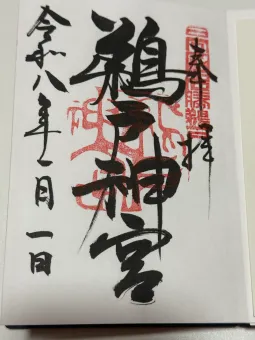 奉拝
鵜戸神宮
令和八年一月一日